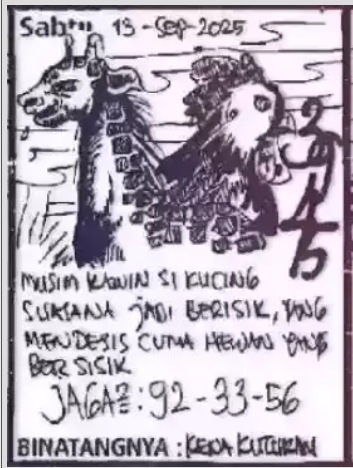 Sabtu 13-Sep-2025
MUSIM KAWIN SI KUCING
SUASANA JADI BERISIK, YANG
MENDESIS CUMA HEWAN YANG
BERSISIK
JAGA2:92-33-56
BINATANGNYA : KERA KUTUKAN